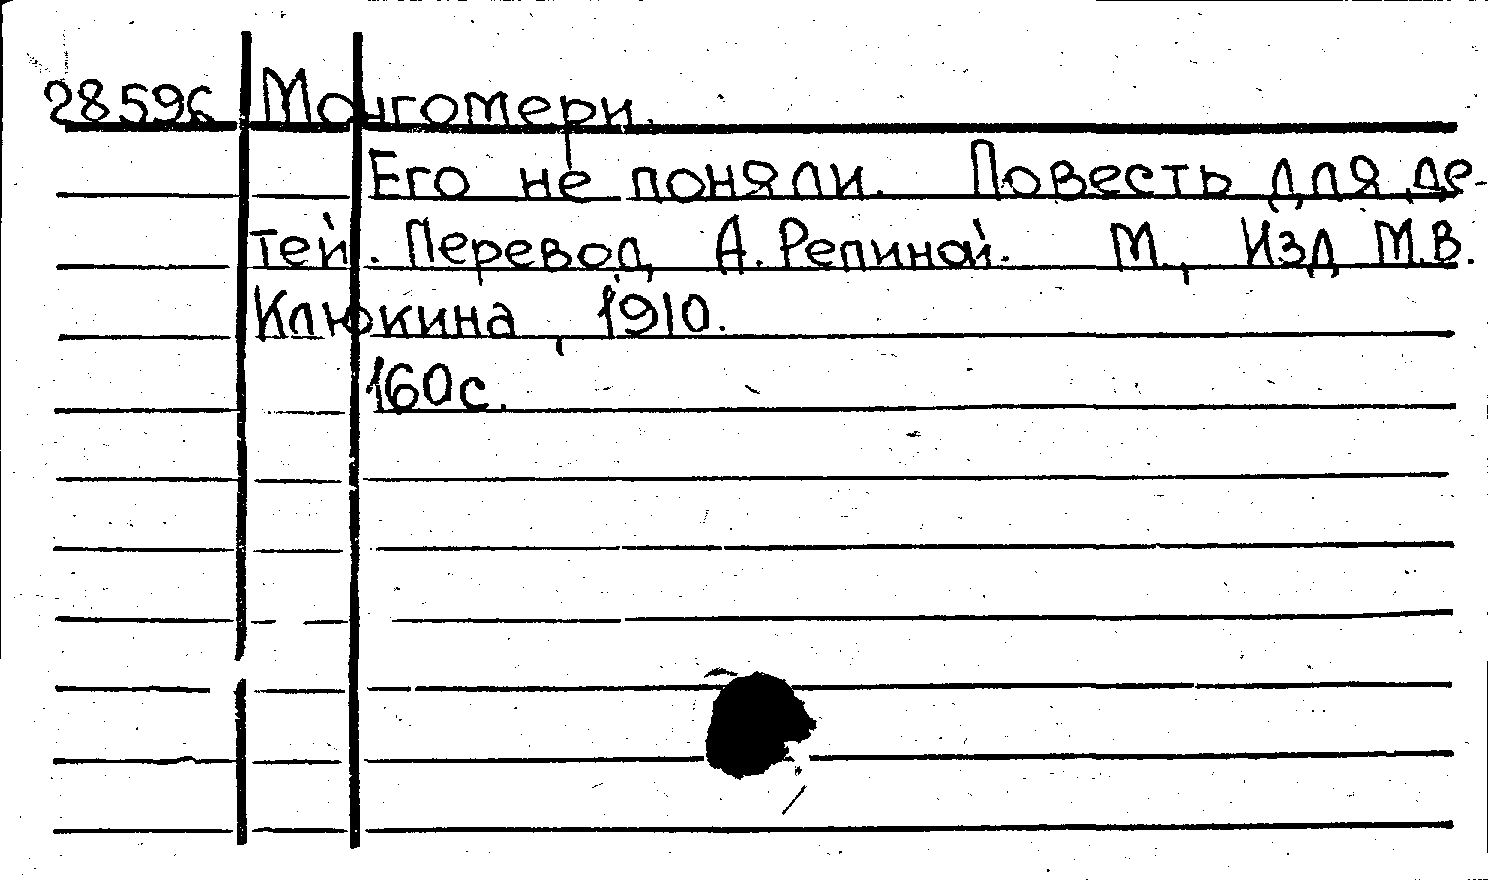 28596 Монгомери.
Его не поняли. Повесть для де-
тей. Перевод А. Репиной. М., Изд М.В.
Клюкина, 1910.
160с.